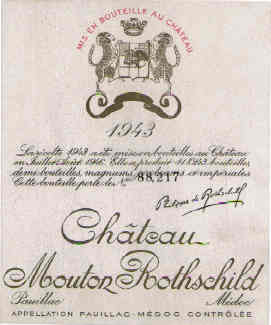 MIS EN BOUTEILLE AU CHÂTEAU
1943
La récolte 1943 a été mise en bouteilles au Château
en Juillet Août 1946. Elle a produit bouteilles
demi-bouteilles, magnums et impériales
Cette bouteille porte le No 88,217
Château
Mouton Rothschild
Pauillac Médoc
APPELLATION PAUILLAC-MÉDOC CONTRÔLÉE